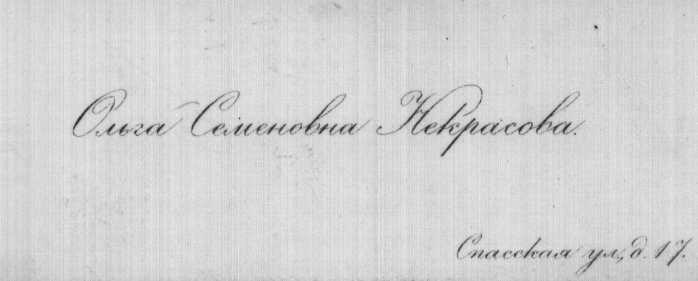 Ольга Семеновна Некрасова.
Спасская ул., д. 17.